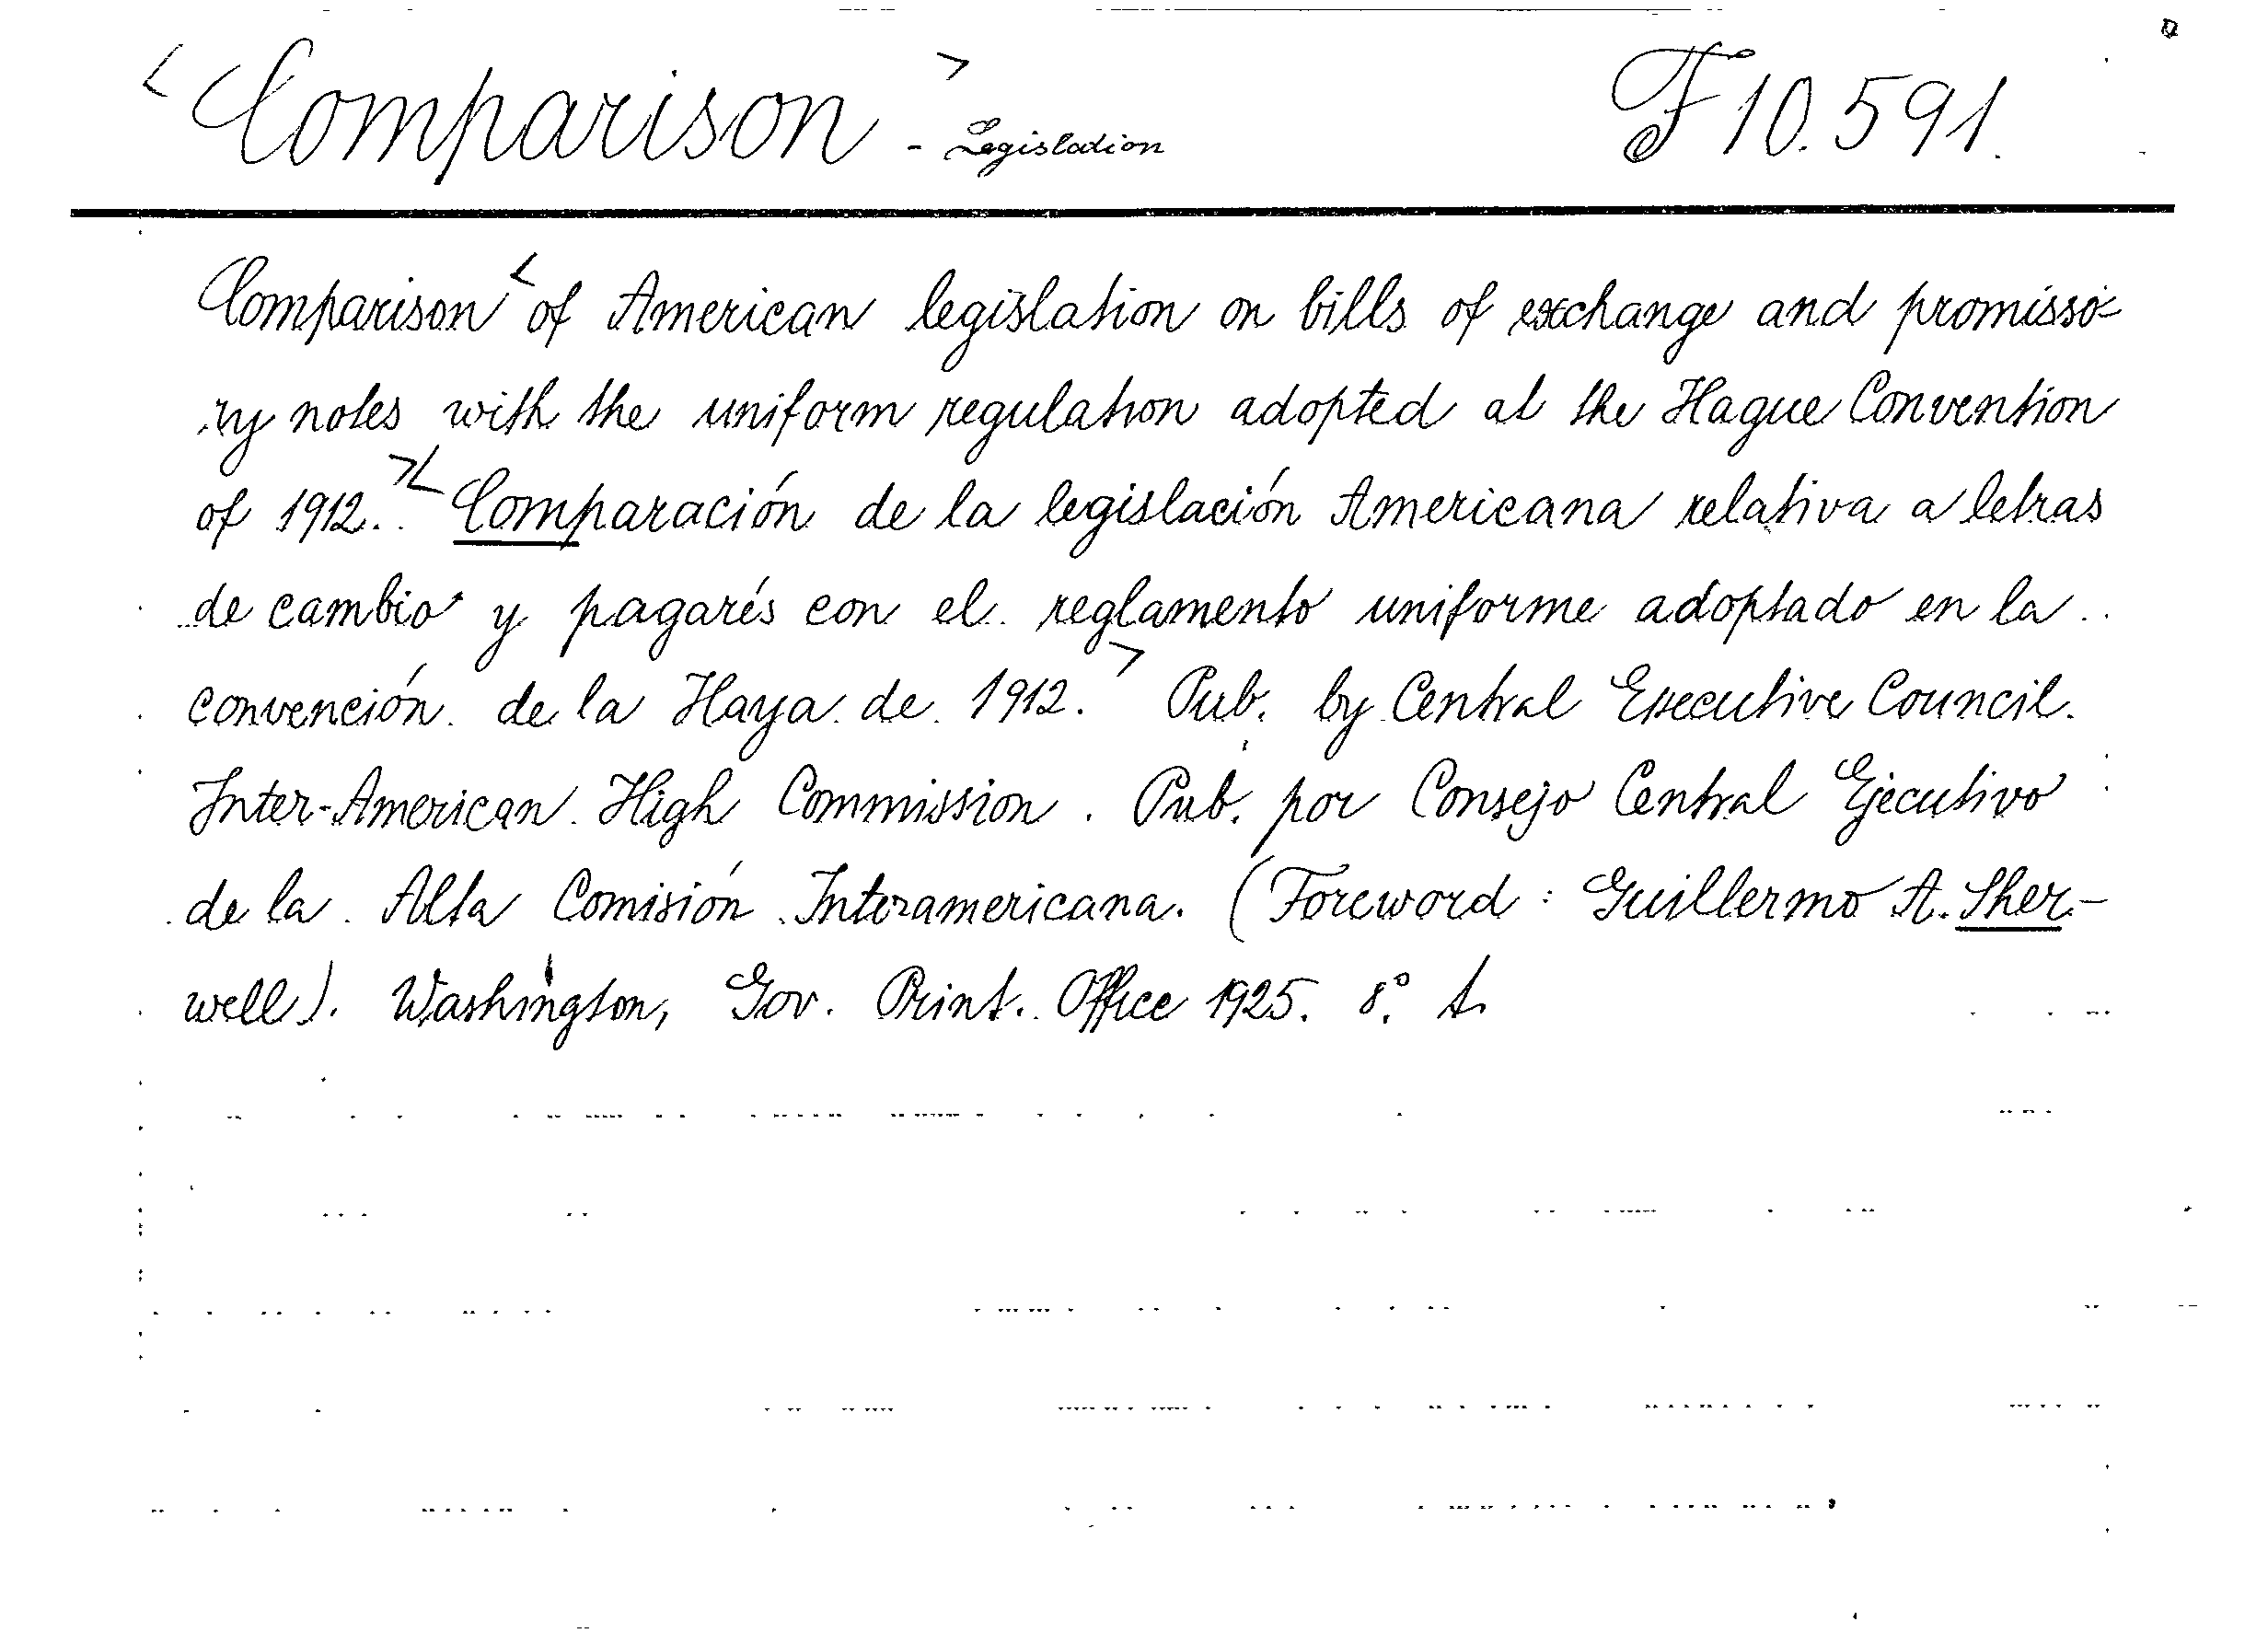 < Comparison > - Legislation F 10.591.
Comparison < of American legislation on bills of exchange and promisso-
ry notes with the uniform regulation adopted at the Hague Convention
of 1912. >< Comparación de la legislación Americana relativa a letras
de cambio y pagarés con el reglamento uniforme adoptado en la
convención de la Haya de 1912. > Pub. by Central Executive Council.
Inter-American High Commission. Pub. por Consejo Central Ejecutivo
de la Alta Comisión Interamericana. (Foreword: Guillermo A. Sher-
well). Washington, Gov. Print. Office 1925. 8.° t.